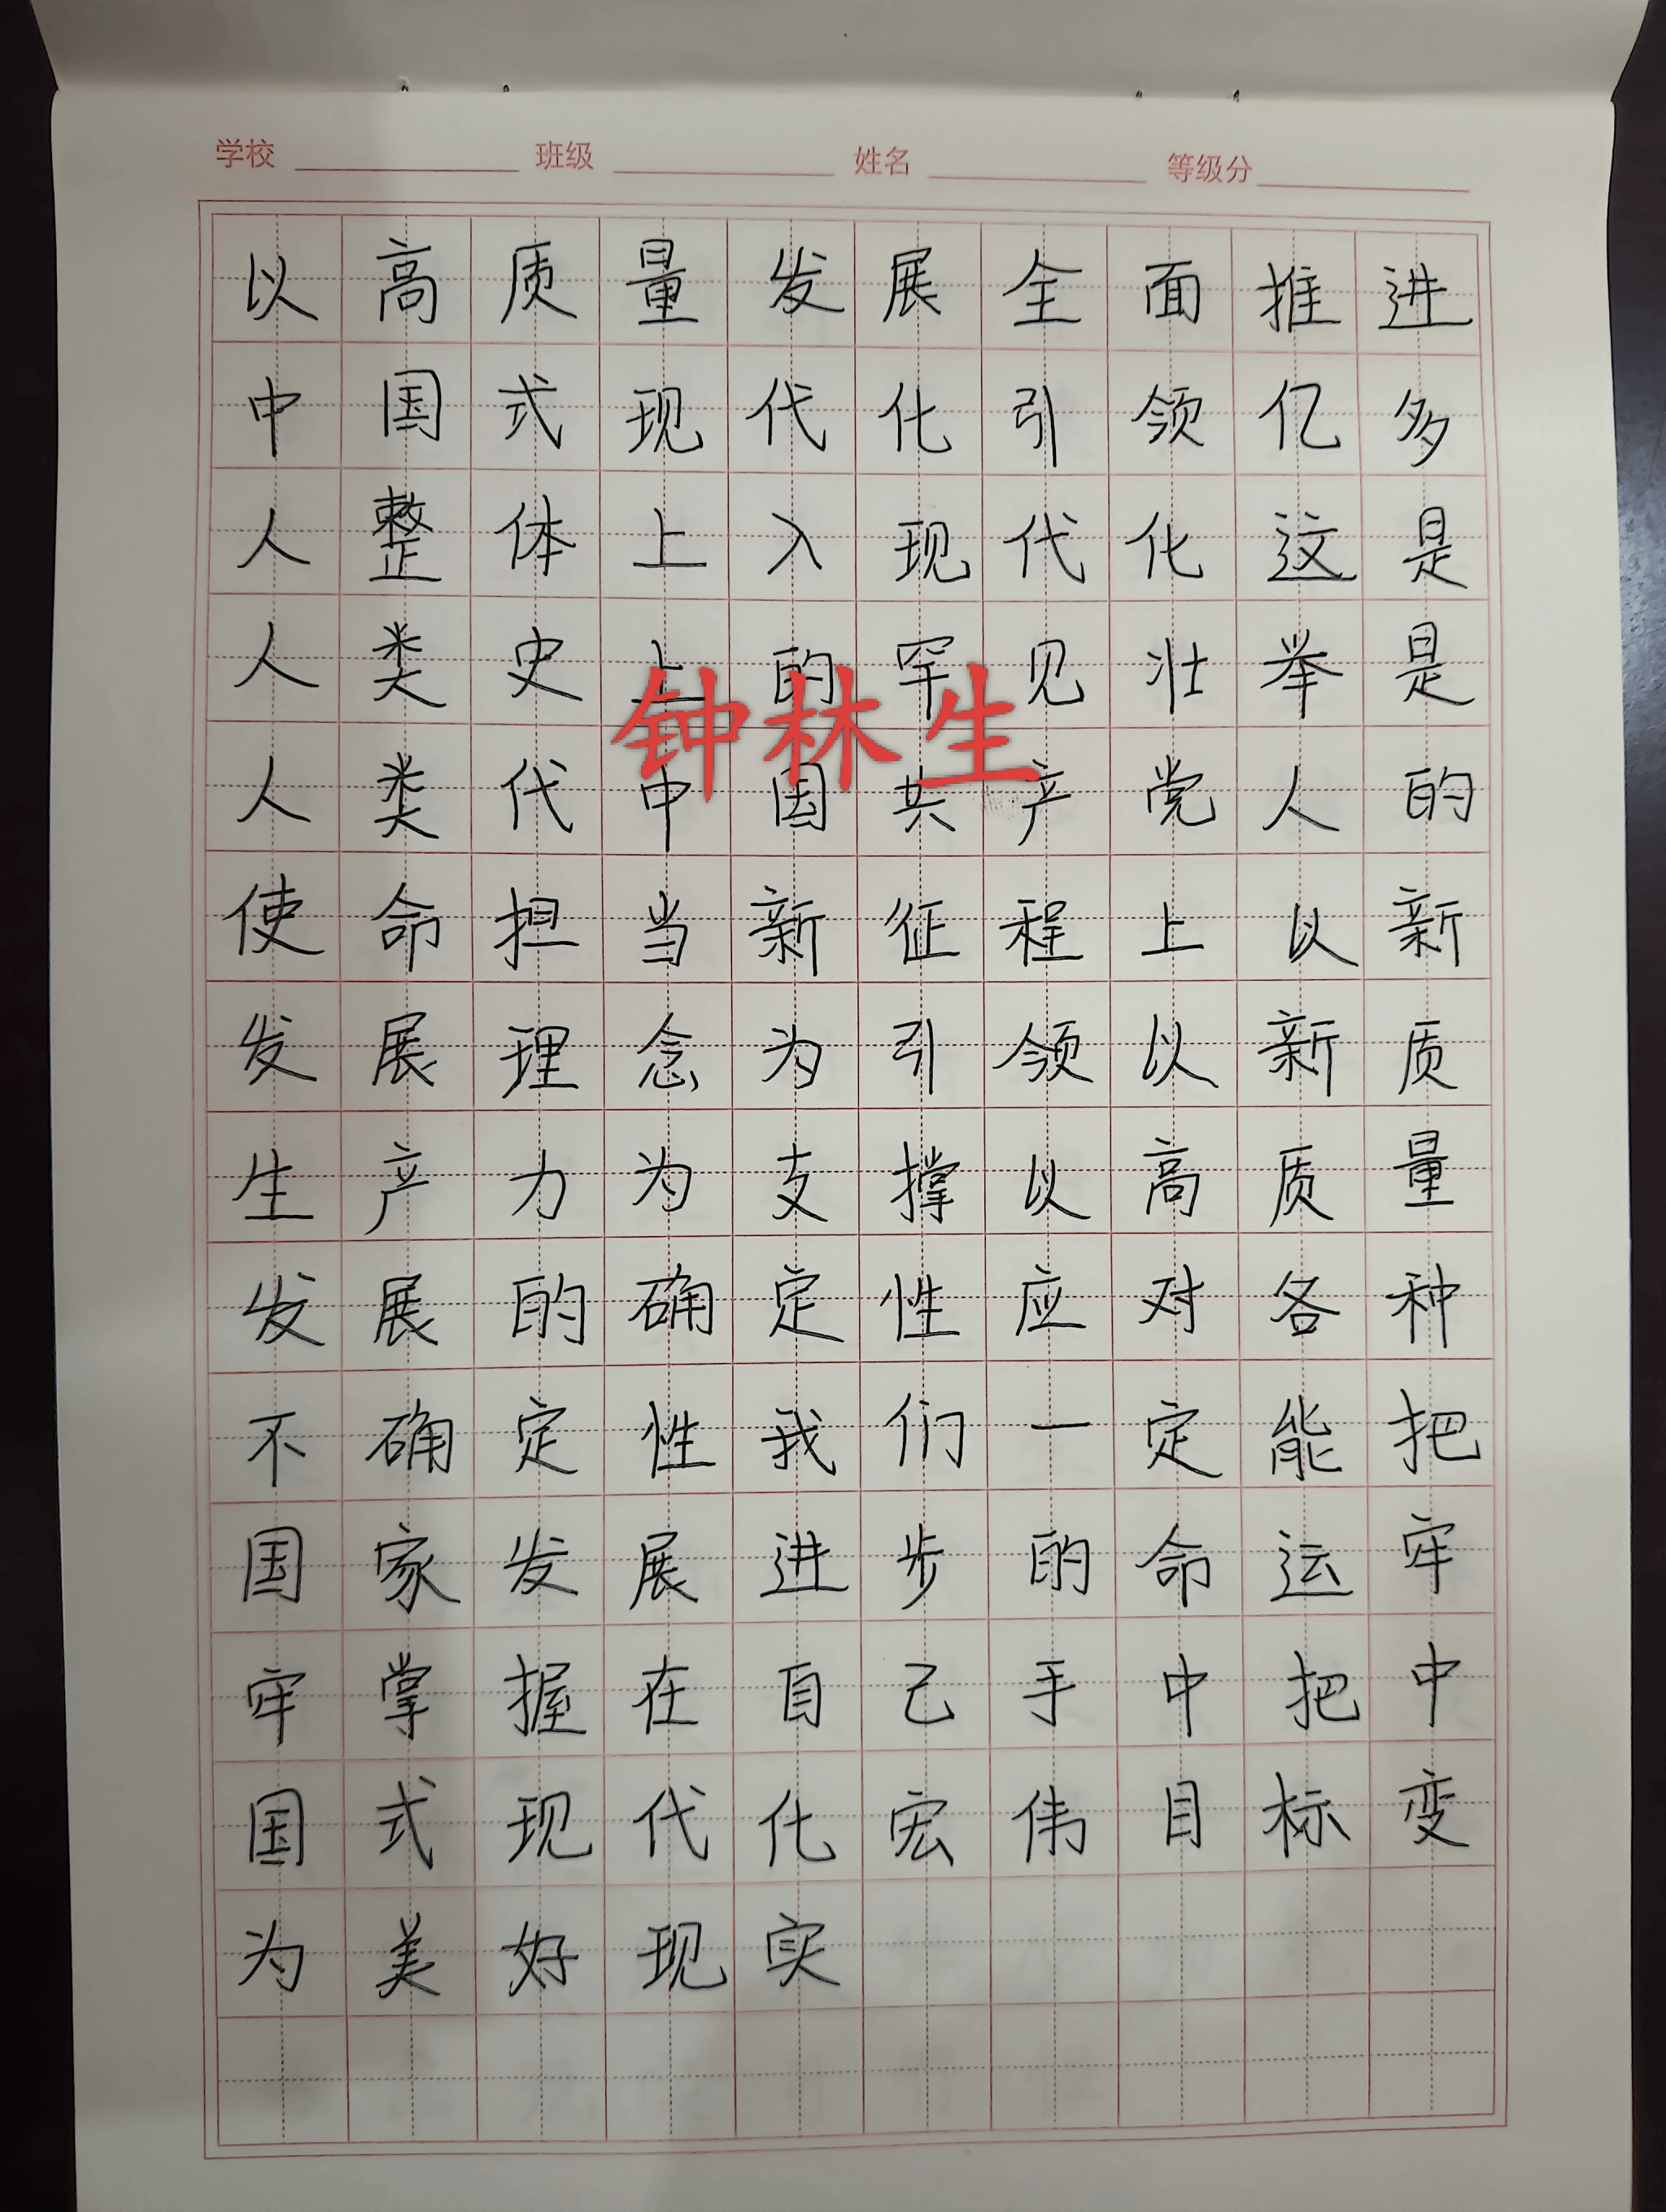 学校 班级 姓名 等级分
以高质量发展全面推进
中国式现代化引领亿多
人整体上入现代化这是
人类史上的罕见壮举是
钟林生
人类代中国共产党人的
使命担当新征程上以新
发展理念为引领以新质
生产力为支撑以高质量
发展的确定性应对各种
不确定性我们一定能把
国家发展进步的命运牢
牢掌握在自己手中把中
国式现代化宏伟目标变
为美好现实